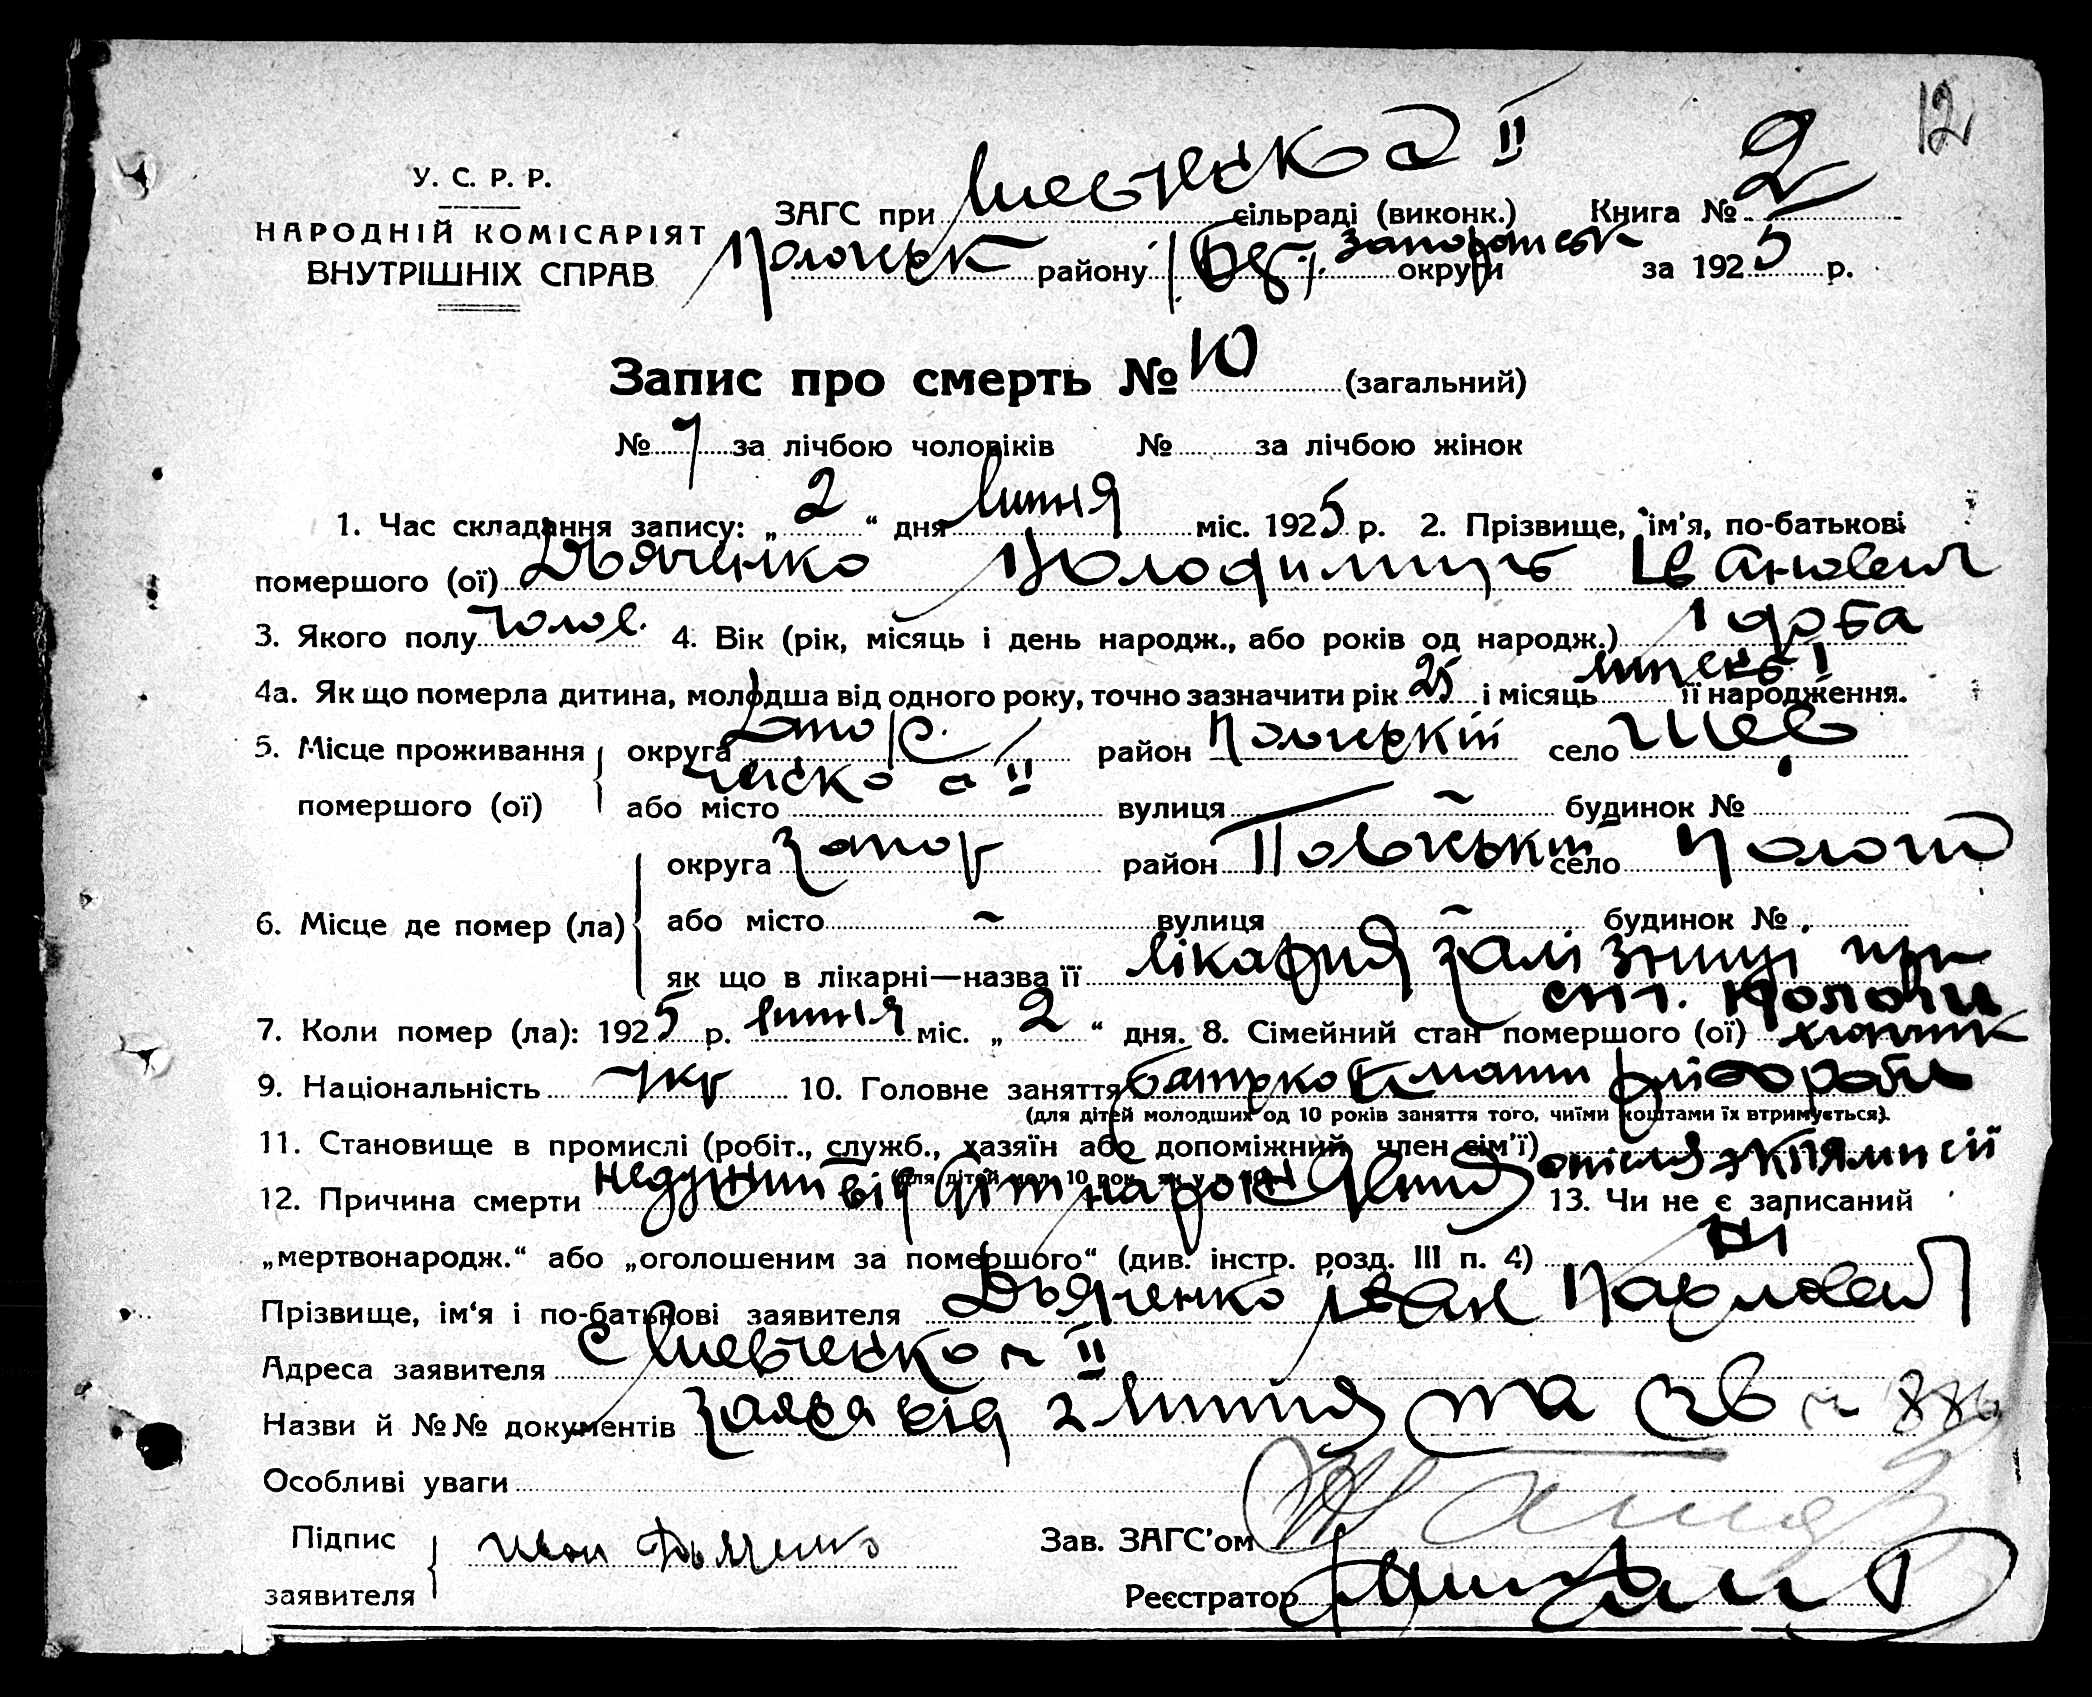 12
У. С. Р. Р.
НАРОДНІЙ КОМІСАРІЯТ
ВНУТРІШНІХ СПРАВ
ЗАГС при Шевченко а II сільраді (виконк.) Книга № 2
Пологськ району Запорожськ округи за 1925 р.
Запис про смерть № 10 (загальний)
№ 7 за лічбою чоловіків № за лічбою жінок
1. Час складання запису: „ 2 “ дня липня міс. 1925 р. 2. Прізвище, ім'я, по-батькові
помершого (ої) Дьяченко Володимиръ Іванович
3. Якого полу чолов. 4. Вік (рік, місяць і день народж., або років од народж.) 1 доба
4а. Як що померла дитина, молодша від одного року, точно зазначити рік 25 і місяць липень 1 її народження.
5. Місце проживання округа Запор. район Пологський село Шев
помершого (ої) або місто ченко а II вулиця – ~ будинок №
округа Запор район село Пологи
6. Місце де помер (ла) або місто ~ вулиця ~ будинок №
як що в лікарні—назва її лікарня залізниці при
ст. Пологи
7. Коли помер (ла): 1925 р. липня міс. „ 2 “ дня. 8. Сімейний стан помершого (ої) хлопчик
9. Національність укр 10. Головне заняття батько мати хліборобы
(для дітей молодших од 10 років заняття того, чиїми коштами їх втримується).
11. Становище в промислі (робіт., служб., хазяїн або допоміжний член сім'ї)
12. Причина смерти недужий від 13. Чи не є записаний
„мертвонародж.“ або „оголошеним за помершого“ (див. інстр. розд. III п. 4) Ні
Прізвище, ім'я і по-батькові заявителя Дьяченко Іван Павлович
Адреса заявителя с Шевченко а II
Назви й №№ документів заява від 2 липня та
Особливі уваги
Підпис Иван Дьяченко Зав. ЗАГС'ом
заявителя Реєстратор